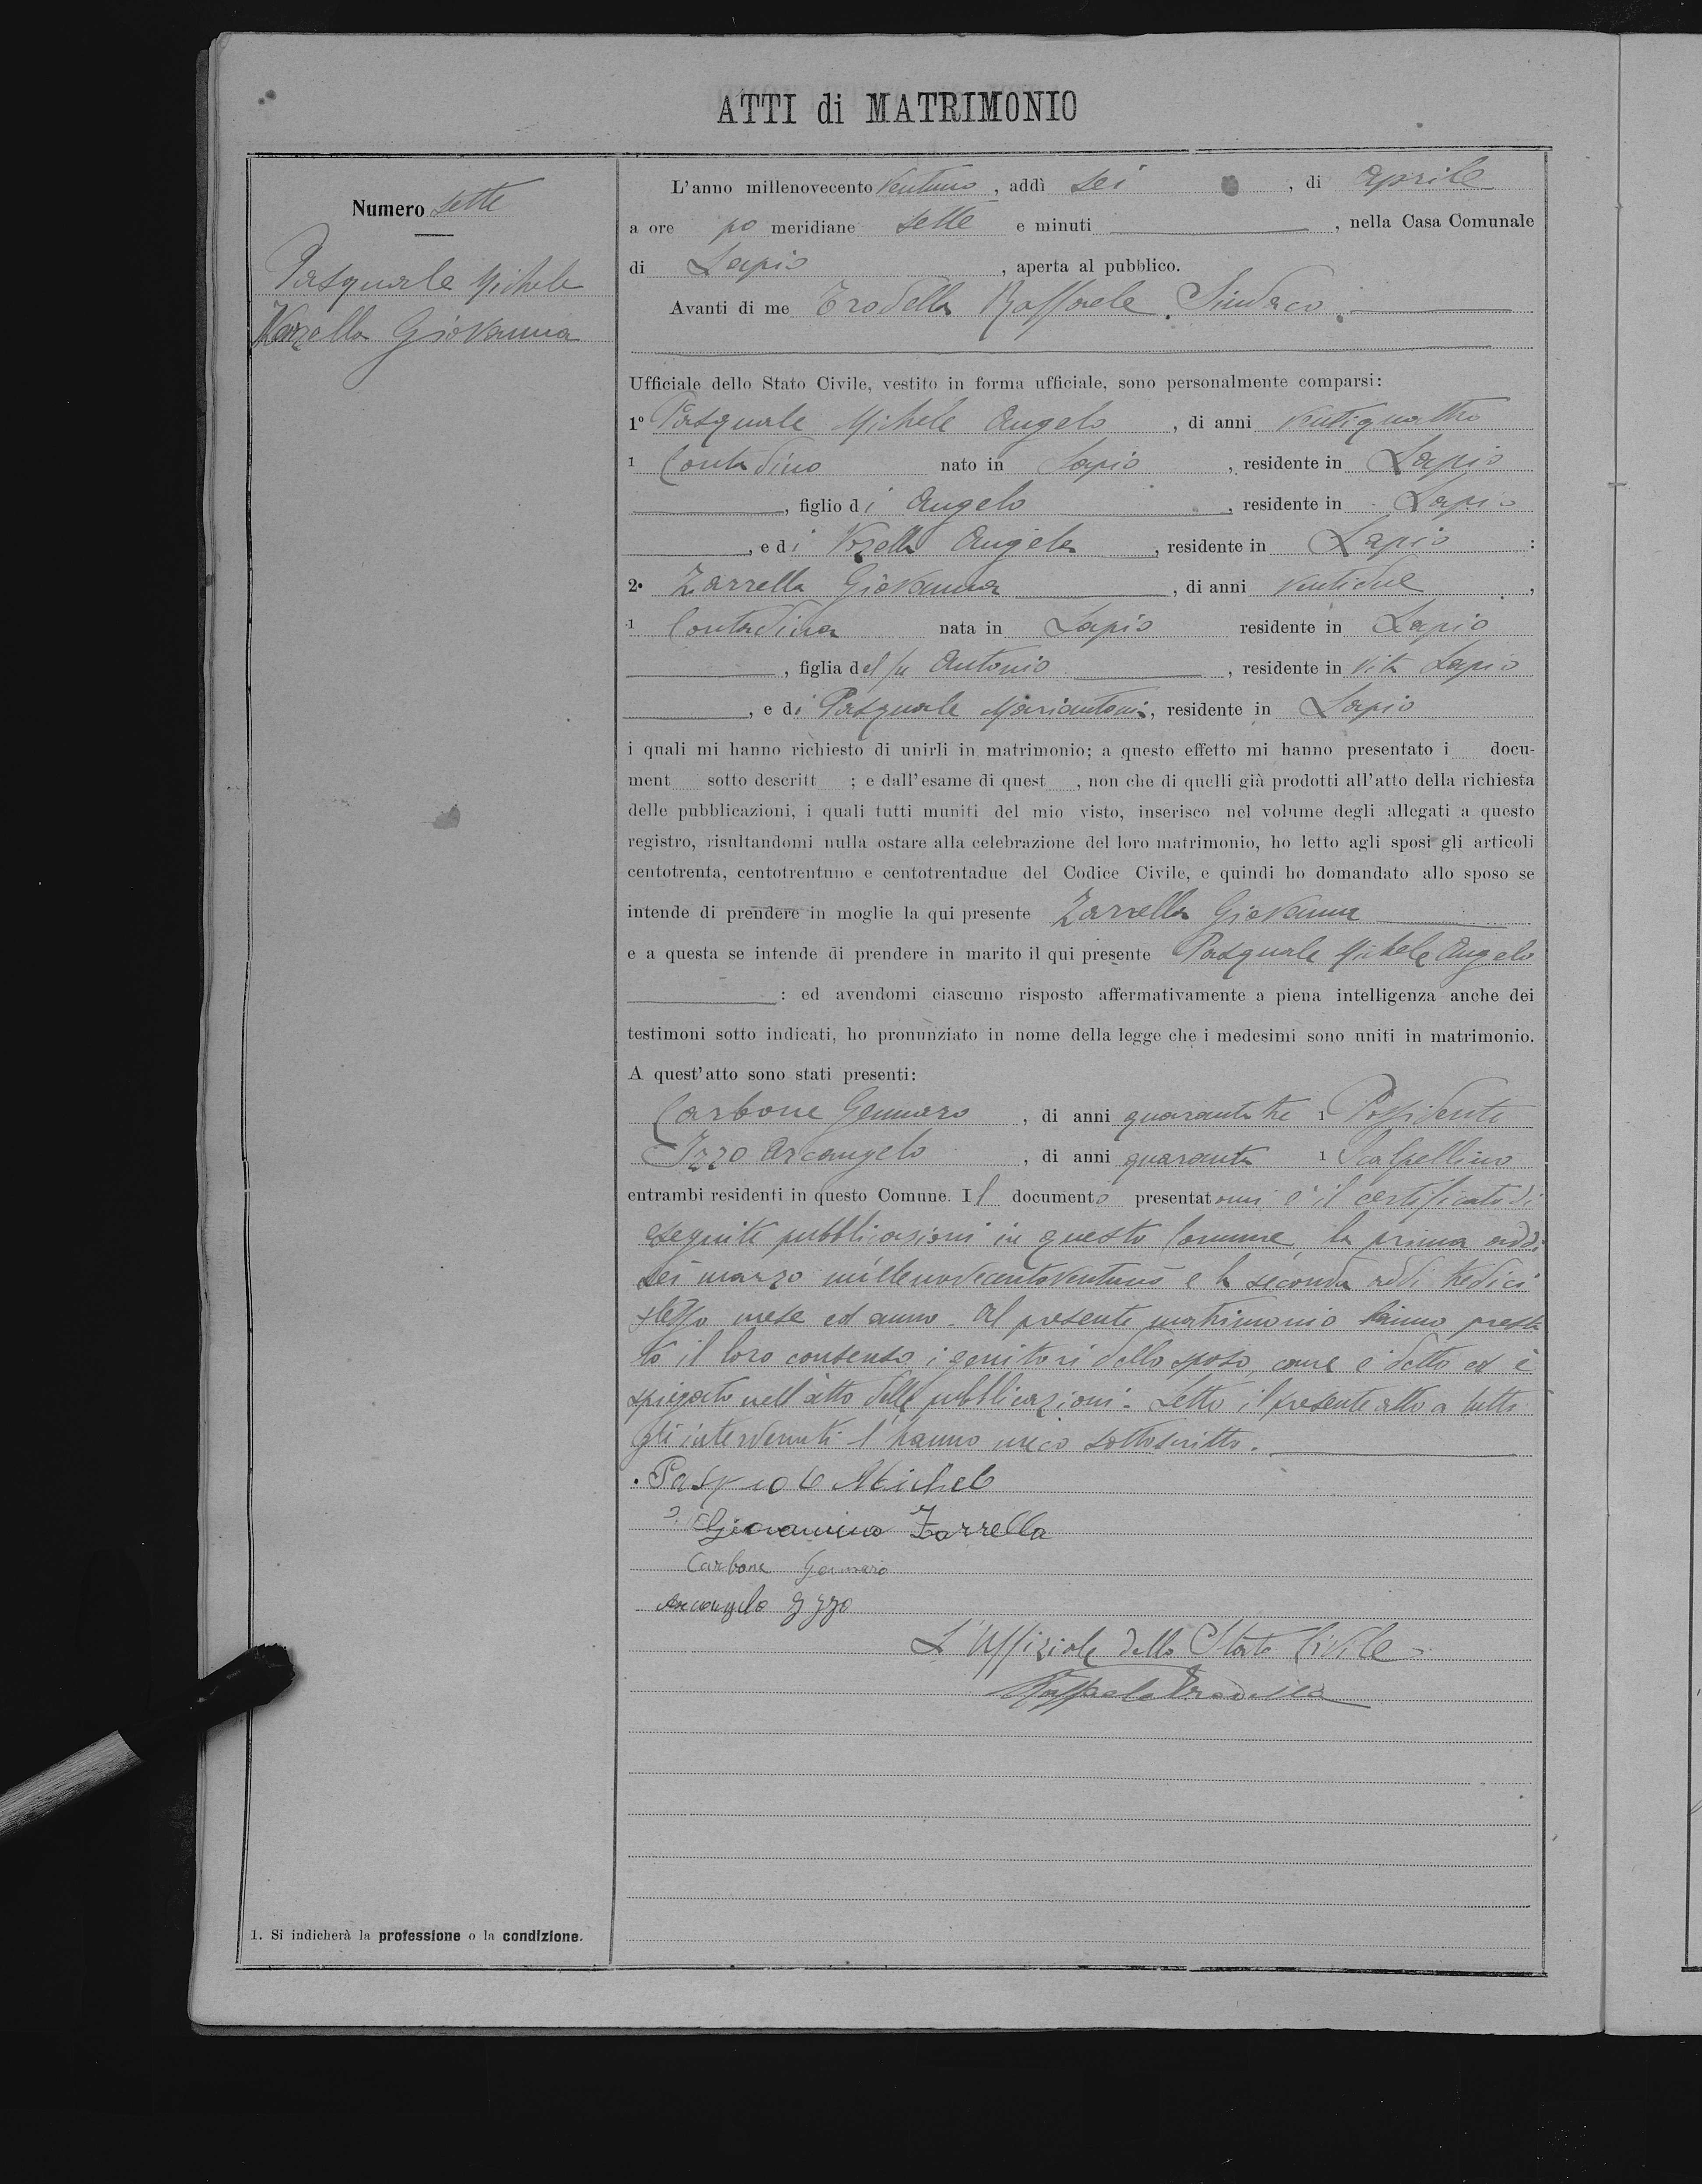 ATTI di MATRIMONIO
Numero sette
Pasquale Michele
Zarrella Giovanna
L'anno millenovecento ventuno, addì sei, di Aprile
a ore po meridiane sette e minuti, nella Casa Comunale
di Lapio, aperta al pubblico.
Avanti di me Trodella Raffaele Sindaco
Ufficiale dello Stato Civile, vestito in forma ufficiale, sono personalmente comparsi:
1º Pasquale Michele Angelo, di anni ventiquattro
1 Contadino nato in Lapio, residente in Lapio
, figlio di Angelo, residente in Lapio
, e di Angela, residente in Lapio:
2º Zarrella Giovanna, di anni ventidue,
1 Contadina nata in Lapio residente in Lapio
, figlia del fu Antonio, residente in vita Lapio
, e di Pasquale Mariantonia, residente in Lapio
i quali mi hanno richiesto di unirli in matrimonio; a questo effetto mi hanno presentato i docu-
ment sotto descritt ; e dall'esame di quest , non che di quelli già prodotti all'atto della richiesta
delle pubblicazioni, i quali tutti muniti del mio visto, inserisco nel volume degli allegati a questo
registro, risultandomi nulla ostare alla celebrazione del loro matrimonio, ho letto agli sposi gli articoli
centotrenta, centotrentuno e centotrentadue del Codice Civile, e quindi ho domandato allo sposo se
intende di prendere in moglie la qui presente Zarrella Giovanna
e a questa se intende di prendere in marito il qui presente Pasquale Michele Angelo
: ed avendomi ciascuno risposto affermativamente a piena intelligenza anche dei
testimoni sotto indicati, ho pronunziato in nome della legge che i medesimi sono uniti in matrimonio.
A quest'atto sono stati presenti:
Carbone Gennaro, di anni quarantatre 1 Possidente
Izzo Arcangelo, di anni quaranta 1 Scalpellino
entrambi residenti in questo Comune. Il documento presentatomi è il certificato di
eseguite pubblicazioni in questo Comune, la prima addì
sei marzo millenovecentoventuno e la seconda addì tredici
stesso mese ed anno. Al presente matrimonio hanno presta
to il loro consenso i genitori dello sposo, come è detto ed è
spiegato nell'atto delle pubblicazioni. Letto il presente atto a tutti
gli intervenuti l'hanno meco sottoscritto.
Michele
Giovannina Zarrella
Carbone Gennaro
Arcangelo Izzo
L'Uffiziale dello Stato Civile
Raffaele Trodella
1. Si indicherà la professione o la condizione.